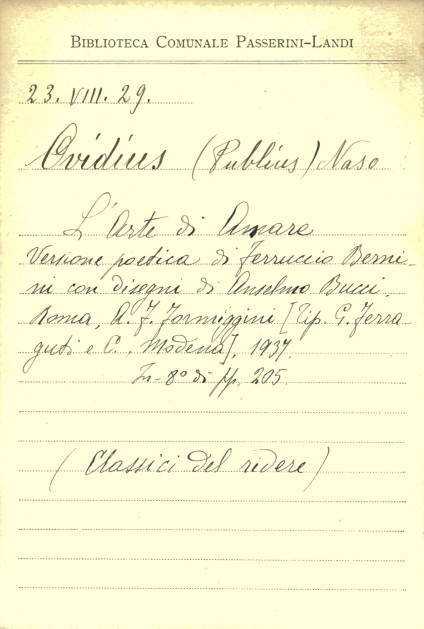 BIBLIOTECA COMUNALE PASSERINI-LANDI
23. VIII. 29.
Ovidius (Publius) Naso
L'Arte di Amare
Versione poetica di Ferruccio Berni-
ni con disegni di Anselmo Bucci.
Roma, A. F. Formiggini [Tip. G. Ferra-
guti e C., Modena], 1937.
In-8° di pp. 205.
(Classici del ridere)